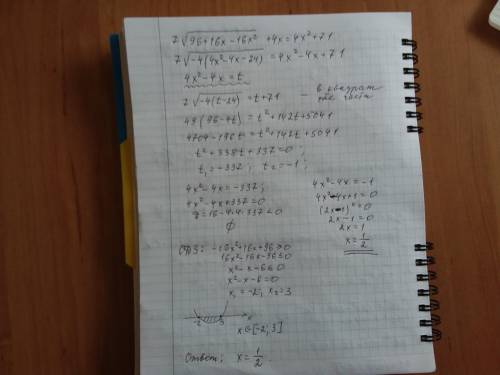 7√(96+16x-16x²) + 4x = 4x² + 71
7√(-4(4x²-4x-24)) = 4x² - 4x + 71
4x² - 4x = t
7√(-4(t-24)) = t + 71 — в квадрат обе части
49(96-4t) = t² + 142t + 5041
4704 - 196t = t² + 142t + 5041
t² + 338t + 337 = 0;
t₁ = -337; t₂ = -1;
4x² - 4x = -337;
4x² - 4x + 337 = 0
D = 16 - 4·4·337 < 0
∅
4x² - 4x = -1
4x² - 4x + 1 = 0
(2x-1)² = 0
2x - 1 = 0
2x = 1
x = 1/2
ОДЗ: -16x² + 16x + 96 ≥ 0
16x² - 16x - 96 ≤ 0
x² - x - 6 ≤ 0
x² - x - 6 = 0
x₁ = -2; x₂ = 3
-2 3 x
x ∈ [-2; 3]
Ответ: x = 1/2.